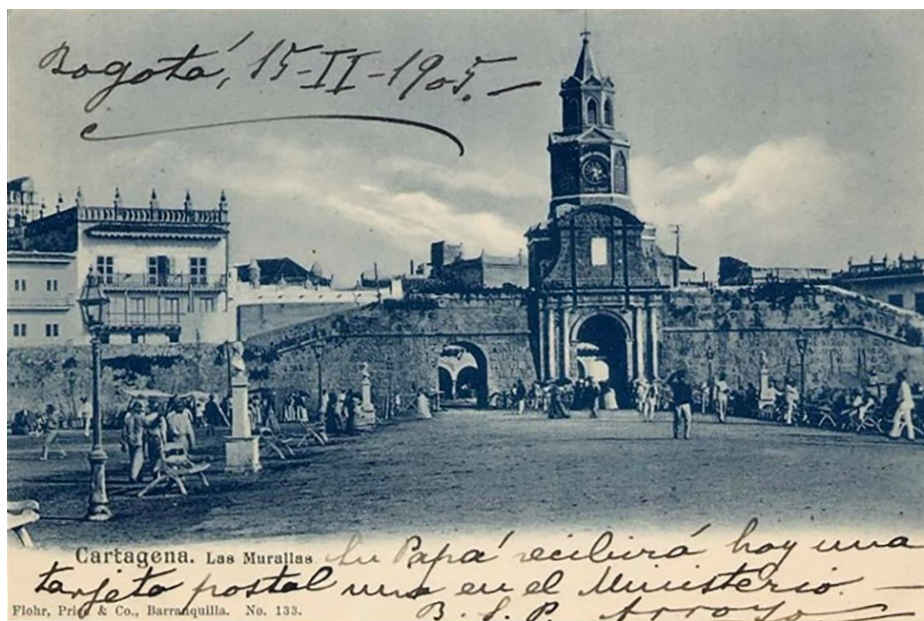 Bogotá, 15-II-1905.-
Cartagena. Las Murallas
Su Papá recibirá hoy una
tarjeta postal mia en el Ministerio.
Flohr, Price & Co., Barranquilla. No. 133.
B. S. P. Arroyo